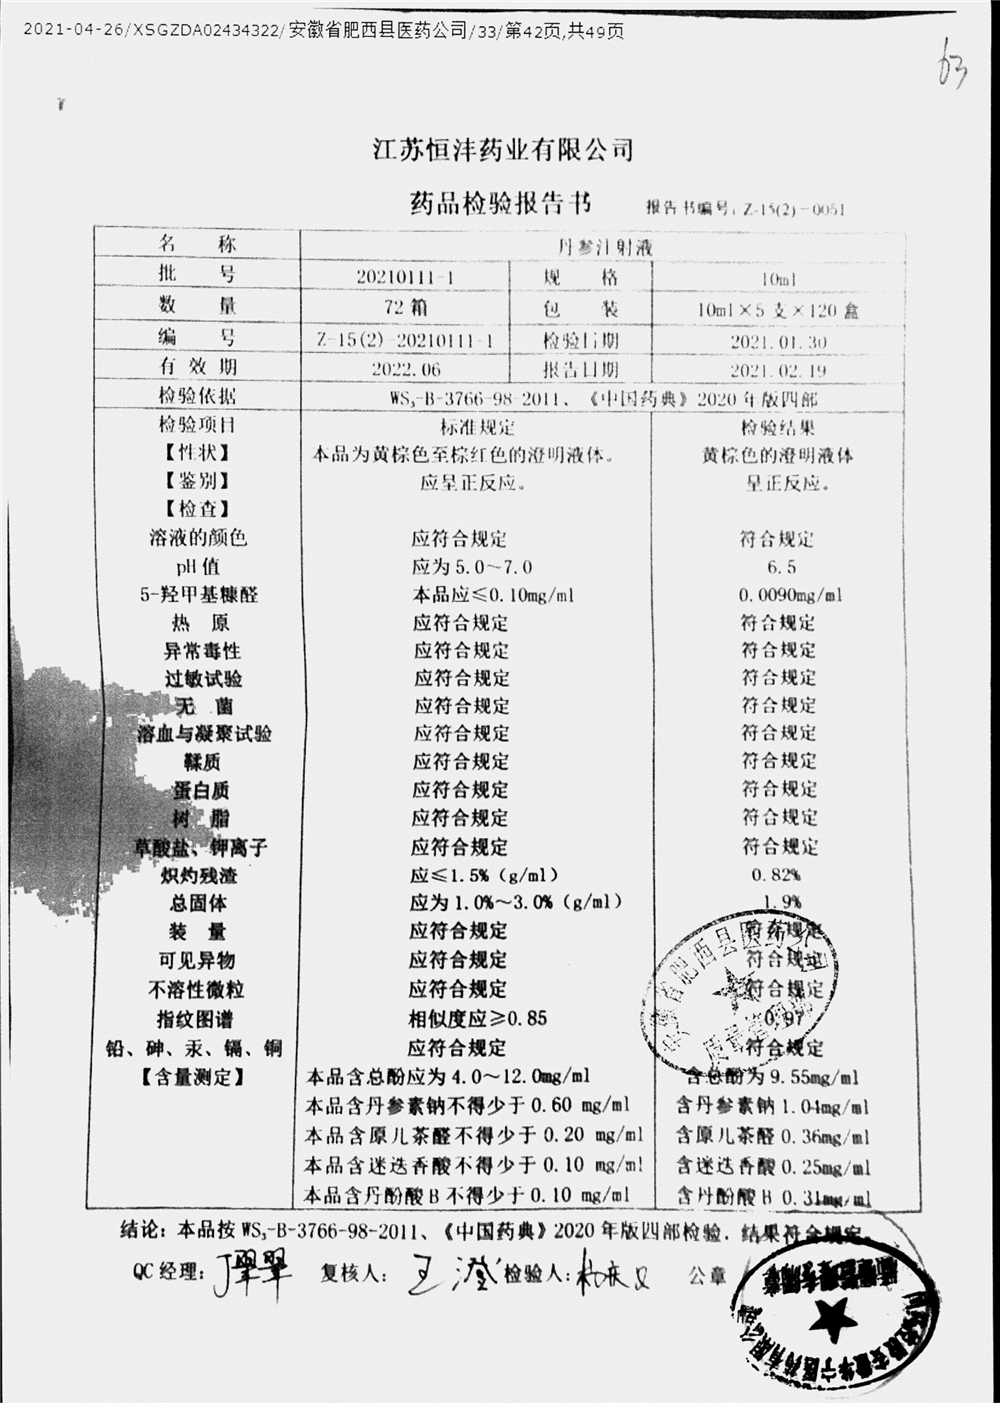 2021-04-26/XSGZDA02434322/安徽省肥西县医药公司/33/第42页,共49页
63
江苏恒沣药业有限公司
药品检验报告书 报告书编号：Z-15(2)-0051
名 称 丹参注射液
批 号 20210111-1 规 格 10ml
数 量 72箱 包 装 10ml×5支×120盒
编 号 Z-15(2)-20210111-1 检验日期 2021.01.30
有 效 期 2022.06 报告日期 2021.02.19
检验依据 WS₃-B-3766-98-2011、《中国药典》2020年版四部
检验项目 标准规定 检验结果
【性状】 本品为黄棕色至棕红色的澄明液体。 黄棕色的澄明液体
【鉴别】 应呈正反应。 呈正反应。
【检查】
溶液的颜色 应符合规定 符合规定
pH值 应为5.0～7.0 6.5
5-羟甲基糠醛 本品应≤0.10mg/ml 0.0090mg/ml
热 原 应符合规定 符合规定
异常毒性 应符合规定 符合规定
过敏试验 应符合规定 符合规定
无 菌 应符合规定 符合规定
溶血与凝聚试验 应符合规定 符合规定
鞣质 应符合规定 符合规定
蛋白质 应符合规定 符合规定
树 脂 应符合规定 符合规定
草酸盐、钾离子 应符合规定 符合规定
炽灼残渣 应≤1.5%（g/ml） 0.82%
总固体 应为1.0%～3.0%（g/ml） 1.9%
装 量 应符合规定 符合规定
可见异物 应符合规定 符合规定
不溶性微粒 应符合规定 符合规定
指纹图谱 相似度应≥0.85 0.97
铅、砷、汞、镉、铜 应符合规定 符合规定
【含量测定】 本品含总酚应为4.0～12.0mg/ml 含总酚为9.55mg/ml
本品含丹参素钠不得少于0.60 mg/ml 含丹参素钠1.04mg/ml
本品含原儿茶醛不得少于0.20 mg/ml 含原儿茶醛0.36mg/ml
本品含迷迭香酸不得少于0.10 mg/ml 含迷迭香酸0.25mg/ml
本品含丹酚酸B不得少于0.10 mg/ml 含丹酚酸B 0.31mg/ml
安徽省肥西县医药公司
结论：本品按WS₃-B-3766-98-2011、《中国药典》2020年版四部检验，结果符合规定。
QC经理：丁翠翠 复核人：王滢 检验人： 公章